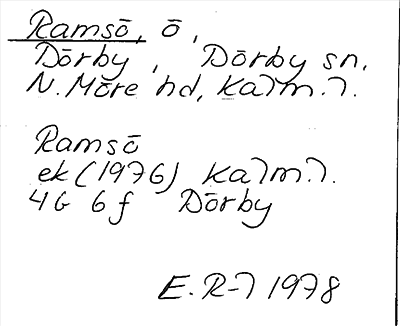 Ramsö, ö,
Dörby, Dörby sn,
N. Möre hd, Kalm. l.
Ramsö
ek (1976) Kalm. l.
4G 6f Dörby
E. R-l 1978